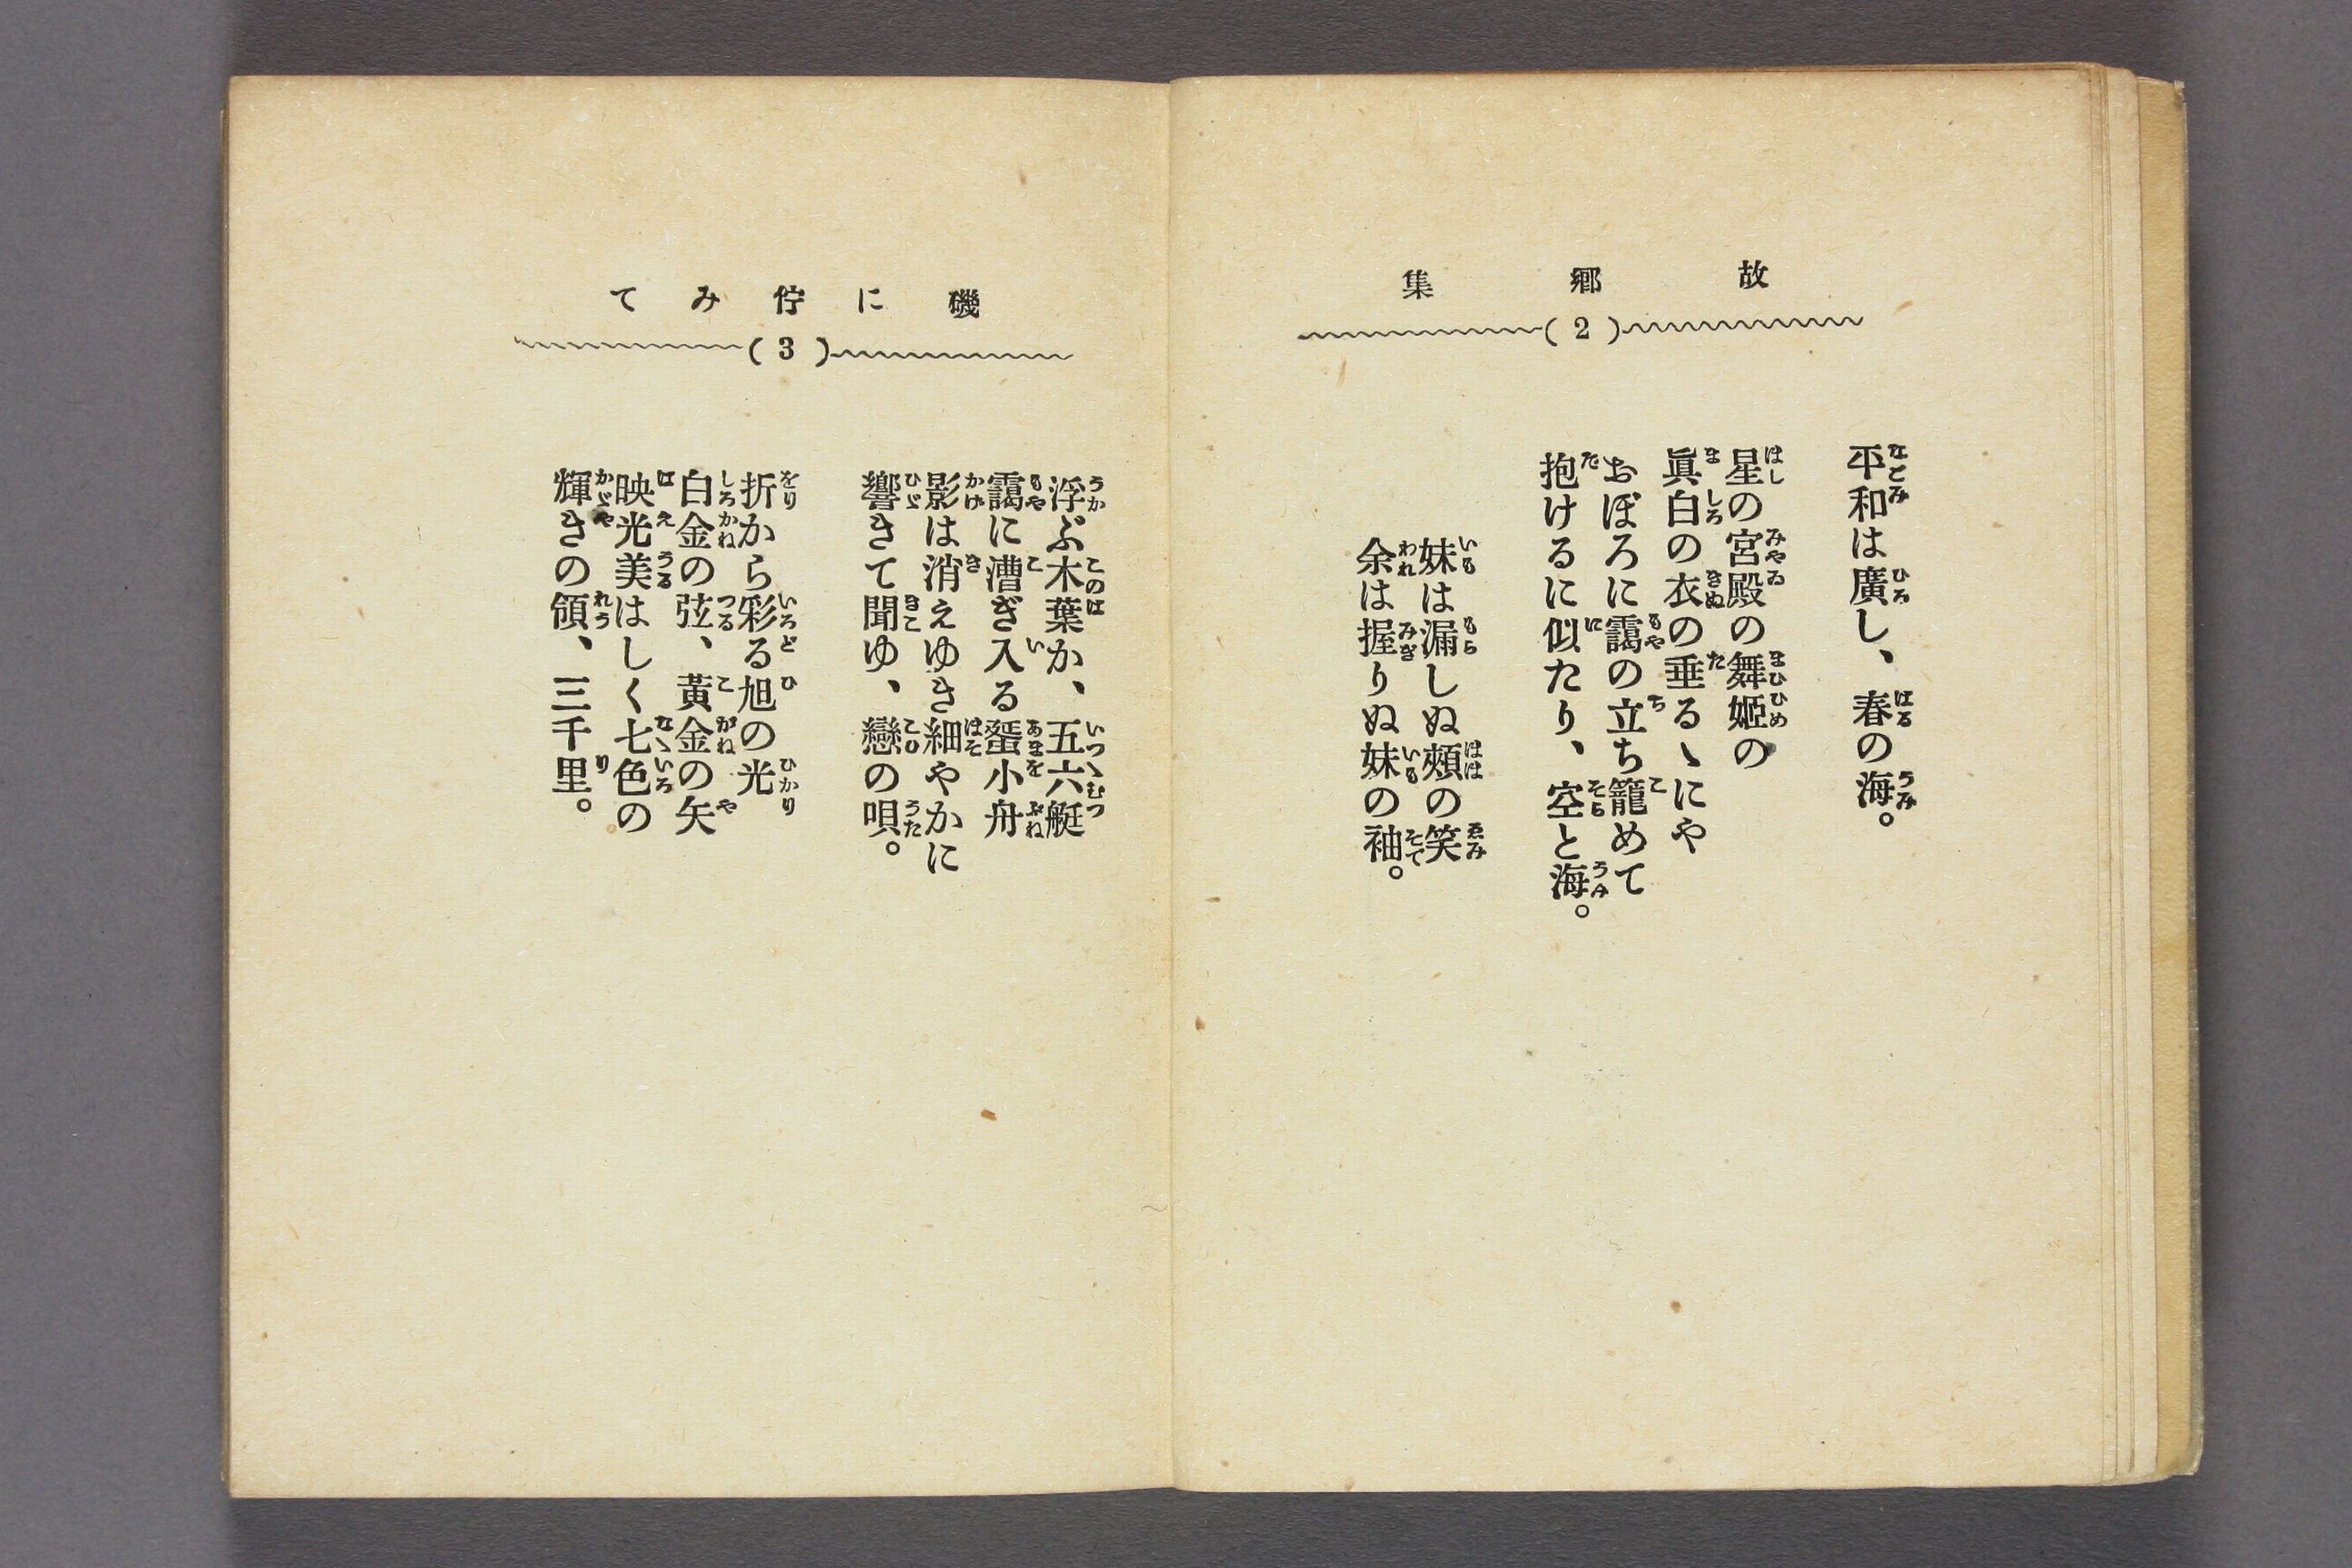 故郷集
(2)
平和は廣し、春の海。
星の宮殿の舞姫の
眞白の衣の垂るゝにや
おぼろに靄の立ち籠めて
抱けるに似たり、空と海。
妹は漏しぬ頰の笑
余は握りぬ妹の袖。
磯に佇みて
(3)
浮ぶ木葉か、五六艇
靄に漕ぎ入る蜑小舟
影は消えゆき細やかに
響きて聞ゆ、戀の唄。
折から彩る旭の光
白金の弦、黃金の矢
映光美はしく七色の
輝きの領、三千里。